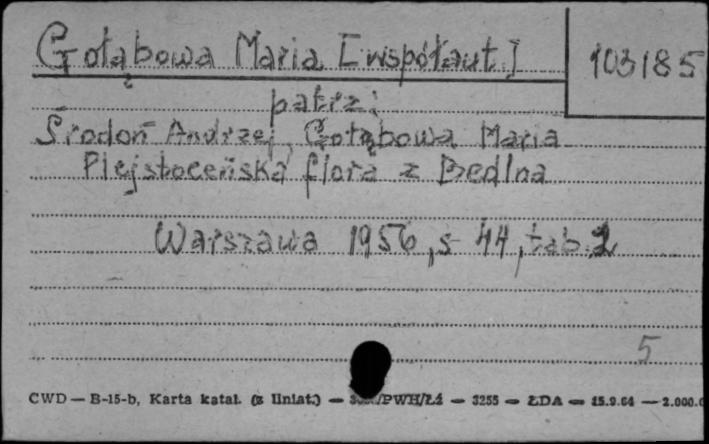 Gołąbowa Maria [współaut.]
103185
patrz:
Środoń Andrzej, Gołąbowa Maria
Plejstoceńska flora z Bedlna
Warszawa 1956, s 44, tab. 2
5
CWD — B-15-b, Karta katal. (z liniat.) — /PWH/Łź — 3255 — ŁDA — 15.9.64 — 2.000.0